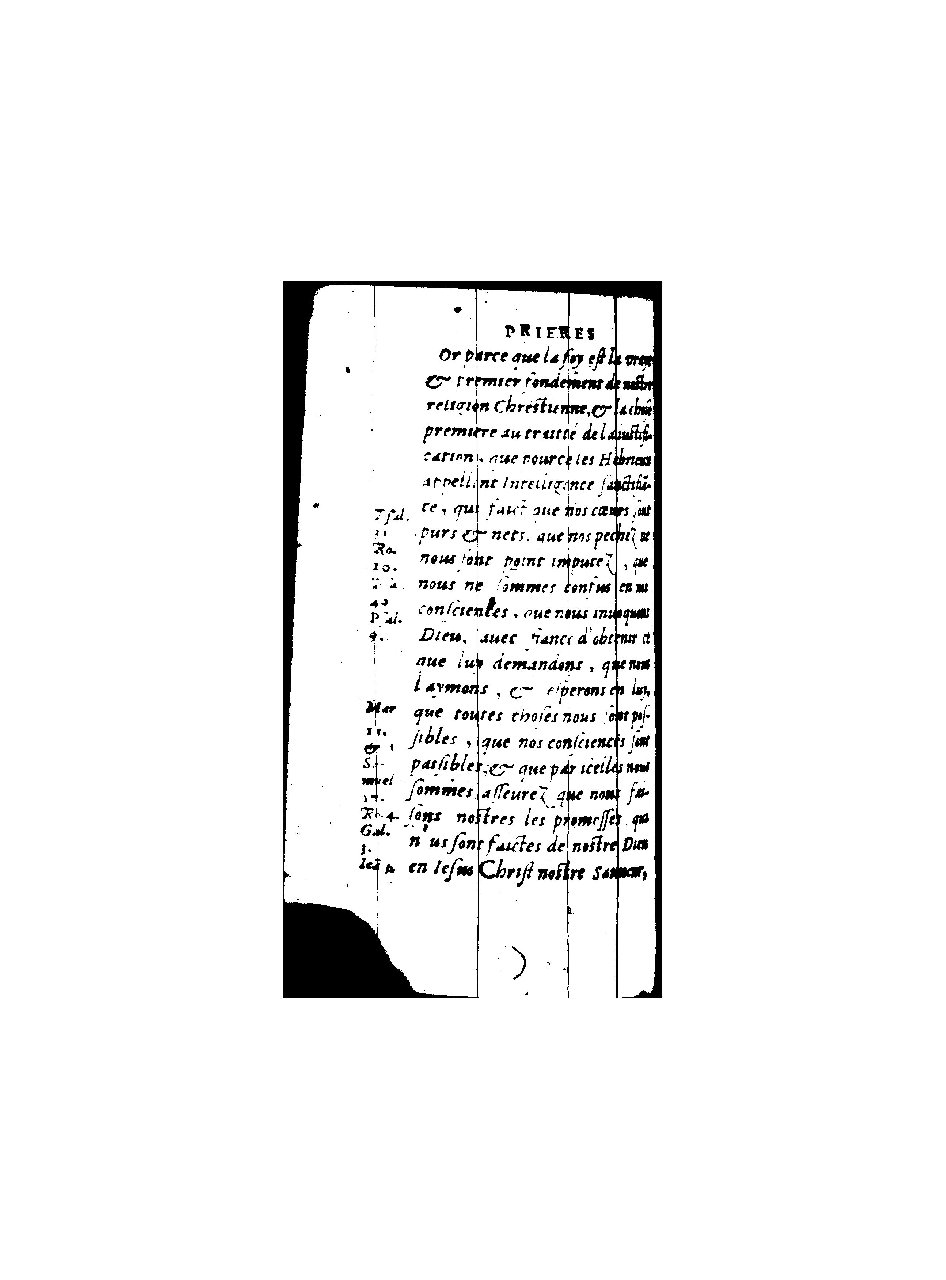 PRIERES
Or parce que la foy est la
& premier fondement de nostre
religion Chrestienne, &
premiere au traitté de la iustifi-
cation, que pource les Hebrieux
appellent Intelligence
te, qui faict que nos cœurs sont
purs & nets, que nos pechez ne
nous sont point imputez, que
nous ne sommes confus en nos
consciences, que nous inuoquons
Dieu, auec fiance d'obtenir ce
que luy demandons, que nous
l'aymons, & esperons en luy,
que toutes choses nous sont pos-
sibles, que nos consciences sont
paisibles, & que par icelles nous
sommes asseurez que nous fai-
sons nostres les promesses qui
nous sont faictes de nostre Dieu
en Iesus Christ nostre Sauueur,
Psal.
Ro.
10.
Psal.
4.
Mar
11.
&
Sa-
muel
17.
Ro. 4.
Gal.
3.